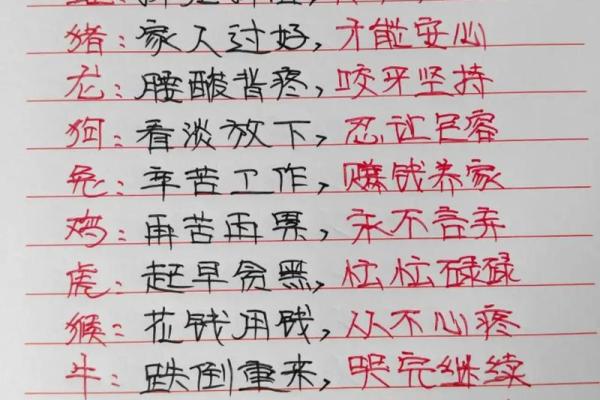 猪：家人过好，才能安心
龙：腰酸背疼，咬牙坚持
狗：看淡放下，忍让包容
兔：辛苦工作，赚钱养家
鸡：再苦再累，永不言弃
虎：起早贪黑，忙忙碌碌
猴：花钱用钱，从不心疼
牛：跌倒重来，哭完继续